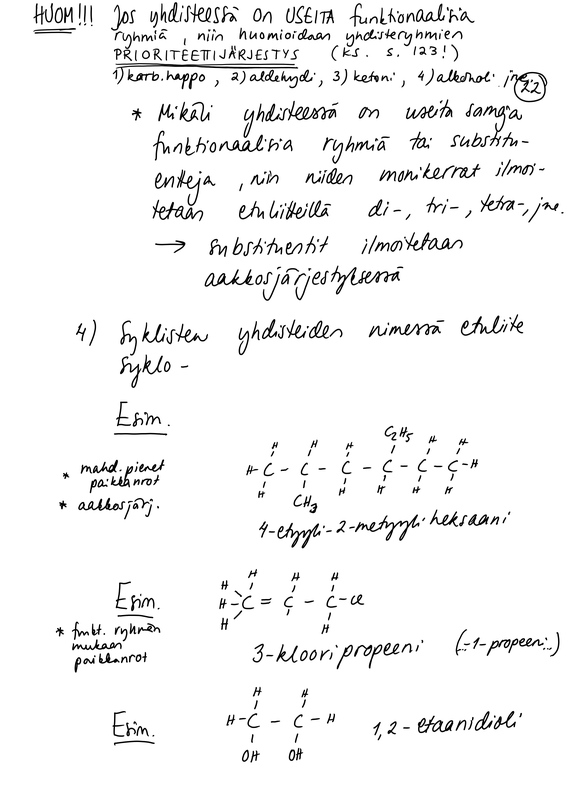 HUOM!!! Jos yhdisteessä on USEITA funktionaalisia
ryhmiä, niin huomioidaan yhdisteryhmien
PRIORITEETTIJÄRJESTYS (ks. s. 123!)
1) karb.happo, 2) aldehydi, 3) ketoni, 4) alkoholi jne
22
* Mikäli yhdisteessä on useita samoja
funktionaalisia ryhmiä tai substitu-
entteja, niin niiden monikerrat ilmoi-
tetaan etuliitteillä di-, tri-, tetra-, jne.
→ substituentit ilmoitetaan
aakkosjärjestyksessä
4) Syklisten yhdisteiden nimessä etuliite
syklo-
Esim.
* mahd. pienet
paikkanrot
* aakkosjärj.
C₂H₅
H H H H H
H-C-C-C-C-C-C-H
H H H H H
CH₃
4-etyyli-2-metyyliheksaani
Esim.
* funkt. ryhmän
mukaan
paikkanrot
H H H H
H-C=C-C-Cl
H H
3-klooripropeeni (..-1-propeeni..)
Esim.
H H
H-C-C-H
OH OH
1,2-etaanidioli